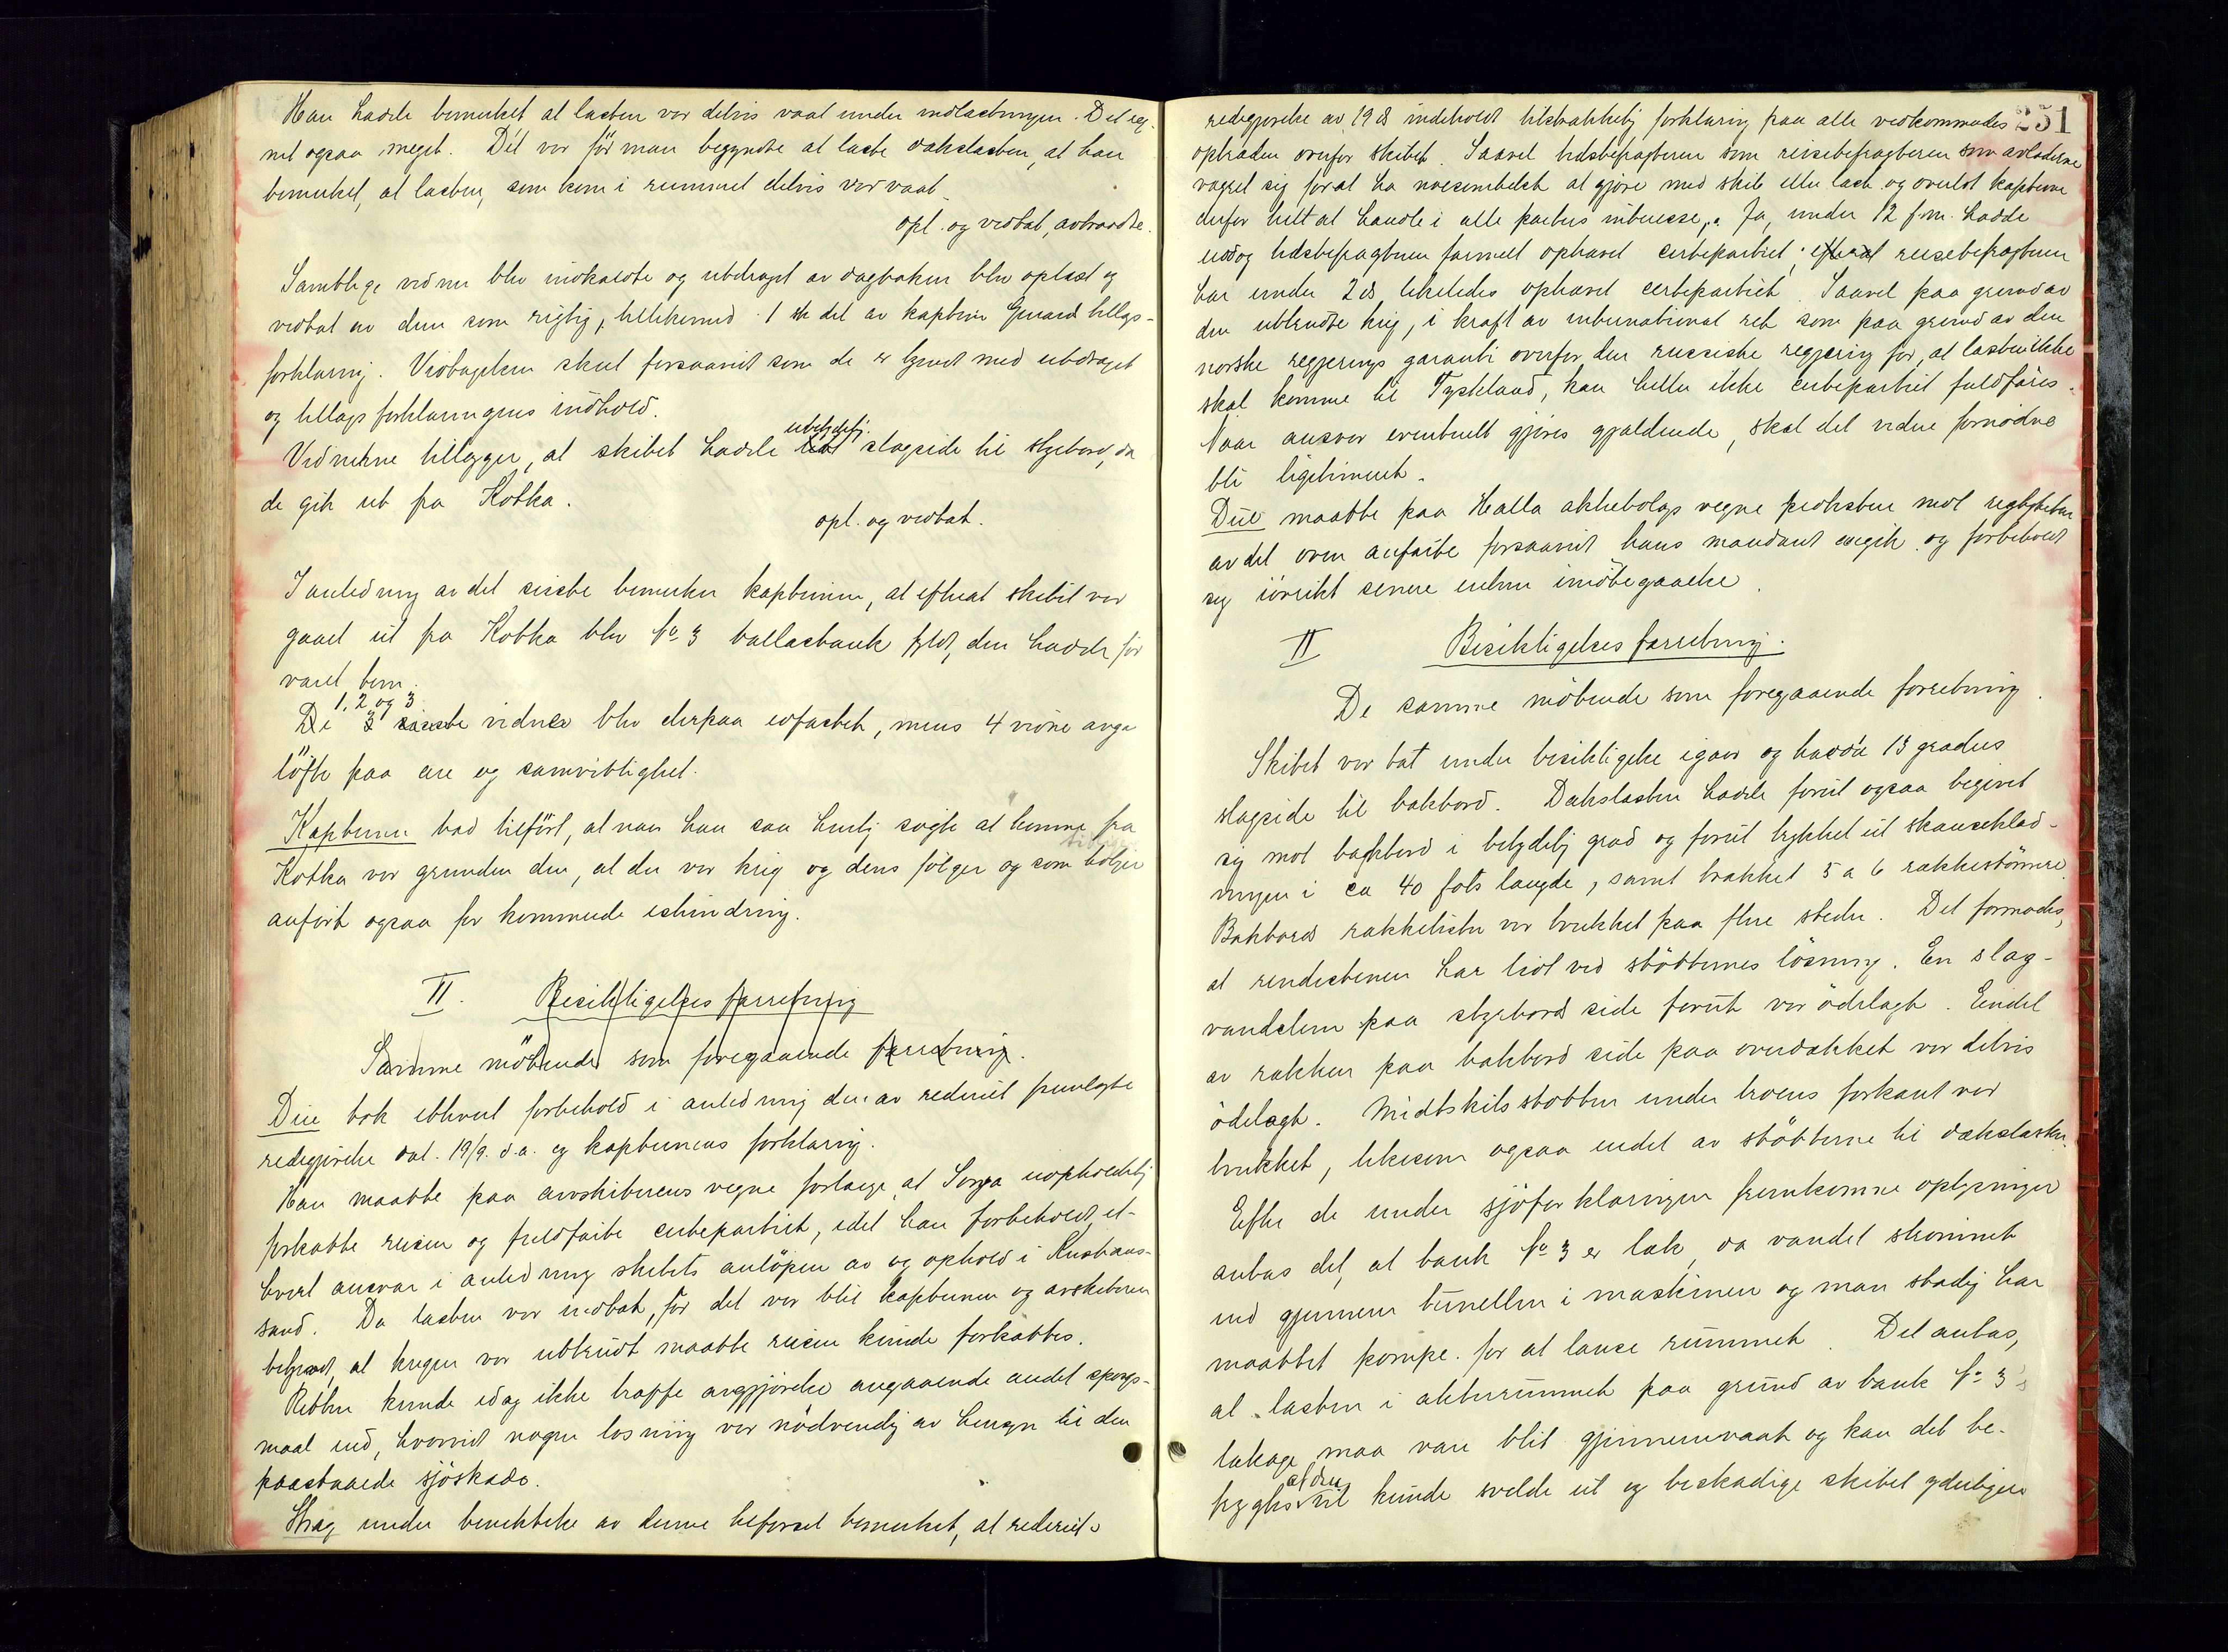 Han hadde bemerket at lasten var delvis vaat under indlastningen. Det reg-
net ogsaa meget. Det var før man begyndte at laste dækslasten, at han
bemerket, at lasten, som kom i rummet delvis var vaat.
opl. og vedtat, avtraadte.
Samtlige vidner blev indkaldte og utdraget av dagboken blev oplæst og
vedtat av dem som rigtig, tillikemed 1 stk del av kaptein Genard tillægs-
forklaring. Vedtagelsen skul forsaavidt som de er kjendt med utdraget
og tillægsforklaringens indhold.
Vidnerne tillægger, at skibet hadde ubetydelig slagside til styrbord, da
de gik ut fra Kotka.
opl. og vedtat.
I anledning av det sidste bemerker kapteinen, at efterat skibet var
gaaet ut fra Kotka blev No 3 ballasttank fyldt, den hadde før
været tom.
1, 2 og 3
De 3 sidste vidner blev derpaa edfæstet, mens 4 vidne avga
løfte paa ære og samvittighet.
Kapteinen bad tilført, at naar han saa hurtig søgte at komme fra
Kotka var grunden den, at der var krig og dens følger og som tidligere
anført ogsaa for kommende ishindring.
II. Besiktigelsesforretning
Samme møtende som foregaaende forretning.
Due tok ethvert forbehold i anledning den av rederiet fremlagte
redegjørelse dat. 19/9. d.a. og kapteinens forklaring.
Han maatte paa avskiberens vegne forlange, at Songa uopholdelig
fortsatte reisen og fuldførte certepartiet, idet han forbeholdt et-
hvert ansvar i anledning skibets anløpen av og ophold i Kristians-
sand. Da lasten var indtat, før det var blit kapteinen og avskiberen
bekjendt, at krigen var utbrudt maatte reisen kunde fortsættes.
Retten kunde idag ikke træffe avgjørelse angaaende andet spørgs-
maal end, hvorvidt nogen losning var nødvendig av hensyn til den
paastaaede sjøskade.
Stray under benektelse av denne beføiet bemerket, at rederiets
251
redegjørelse av 19 ds indeholdt tilstrækkelig forklaring paa alle vedkommendes
optræden overfor skibet. Saavel tidsbefragteren som reisebefragteren som avladerne
vægret sig for at ha noesomhelst at gjøre med skib eller last og overlot kapteinen
derfor helt at handle i alle parters interesse. Ja, under 12 f.m. hadde
endog tidsbefragteren formelt ophævet certepartiet; efterat reisebefragteren
har under 2 ds likeledes ophævet certepartiet. Saavel paa grund av
den utbrudte krig, i kraft av international ret som paa grund av den
norske regjerings garanti overfor den russiske regjering for, at lasten ikke
skal komme til Tyskland, kan heller ikke certepartiet fuldføres.
Naar ansvar eventuelt gjøres gjældende, skal det videre fornødne
bli legitimert.
Due maatte paa Halla aktiebolags vegne protestere mot rigtigheten
av det oven anførte forsaavidt hans mandant angik og forbeholdt
sig iøvrikt senere nærmere imøtegaaelse.
II Besiktigelsesforretning.
De samme møtende som foregaaende forretning.
Skibet var tat under besiktigelse igaar og hadde 13 graders
slagside til bakbord. Dækslasten hadde forut ogsaa begivet
sig mot bakbord i betydelig grad og forut trykket ut skanseklæd-
ningen i ca 40 fots længde, samt brækket 5 a 6 rækkestøtter.
Bakbords rækkelister var brukket paa flere steder. Det formodes,
at rendestenen har lidt ved støtternes løsning. En slag-
vandslem paa styrbords side forut var ødelagt. Endel
av rækken paa bakbord side paa overdækket var delvis
ødelagt. Midtskibsstøtten under broens forkant var
brukket, likesom ogsaa endel av støtterne til dækslasten.
Efter de under sjøforklaringen fremkomne oplysninger
antas det, at tank No 3 er læk, da vandet strømmet
ind gjennem tunellen i maskinen og man stadig har
maattet pumpe for at lænse rummet. Det antas,
at lasten i akterrummet paa grund av tank No 3's
lækage maa være blit gjennemvaat og kan det be-
frygtes at den vil kunde svelde ut og beskadige skibet yderligere